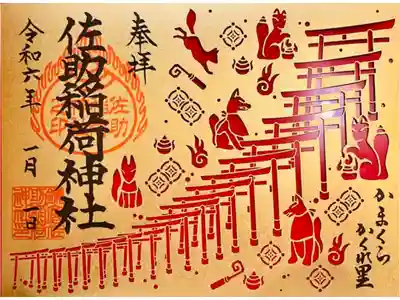 奉拝
佐助稲荷神社
令和六年 一月 一日
かまくら
かくれ里